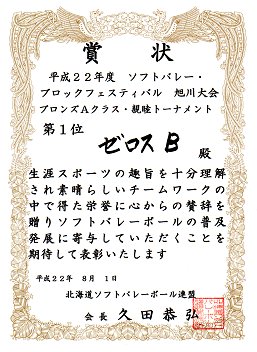 賞状
平成２２年度　ソフトバレー・
ブロックフェスティバル　旭川大会
ブロンズＡクラス・親睦トーナメント
第１位
ゼロス B
殿
生涯スポーツの趣旨を十分理解
され素晴らしいチームワークの
中で得た栄誉に心からの賛辞を
贈りソフトバレーボールの普及
発展に寄与していただくことを
期待して表彰いたします
平成２２年　８月　１日
北海道ソフトバレーボール連盟
会長　久田恭弘